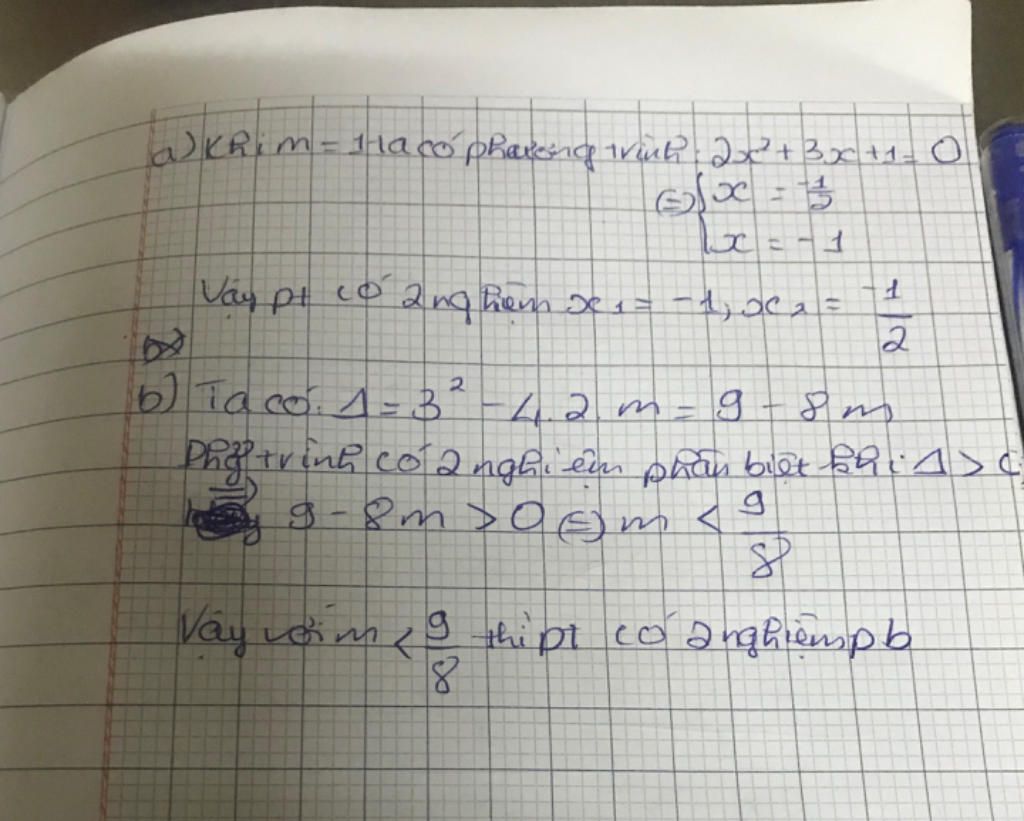 a) Khi m = 1 ta có phương trình: 2x² + 3x + 1 = 0
⇔ { x = -1/2
x = -1
Vậy pt có 2 nghiệm x₁ = -1, x₂ = -1/2
b) Ta có: Δ = 3² - 4.2.m = 9 - 8m
trình có 2 nghiệm phân biệt khi: Δ >
9 - 8m > 0 ⇔ m < 9/8
Vậy với m < 9/8 thì pt có 2 nghiệm pb